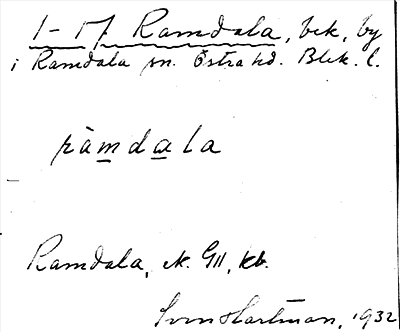 1-17 Ramdala, bek, by
i Ramdala sn. Östra hd. Blek. l.
ràmdala
Ramdala, ek. GII, kb.
Sven Hartman, 1932